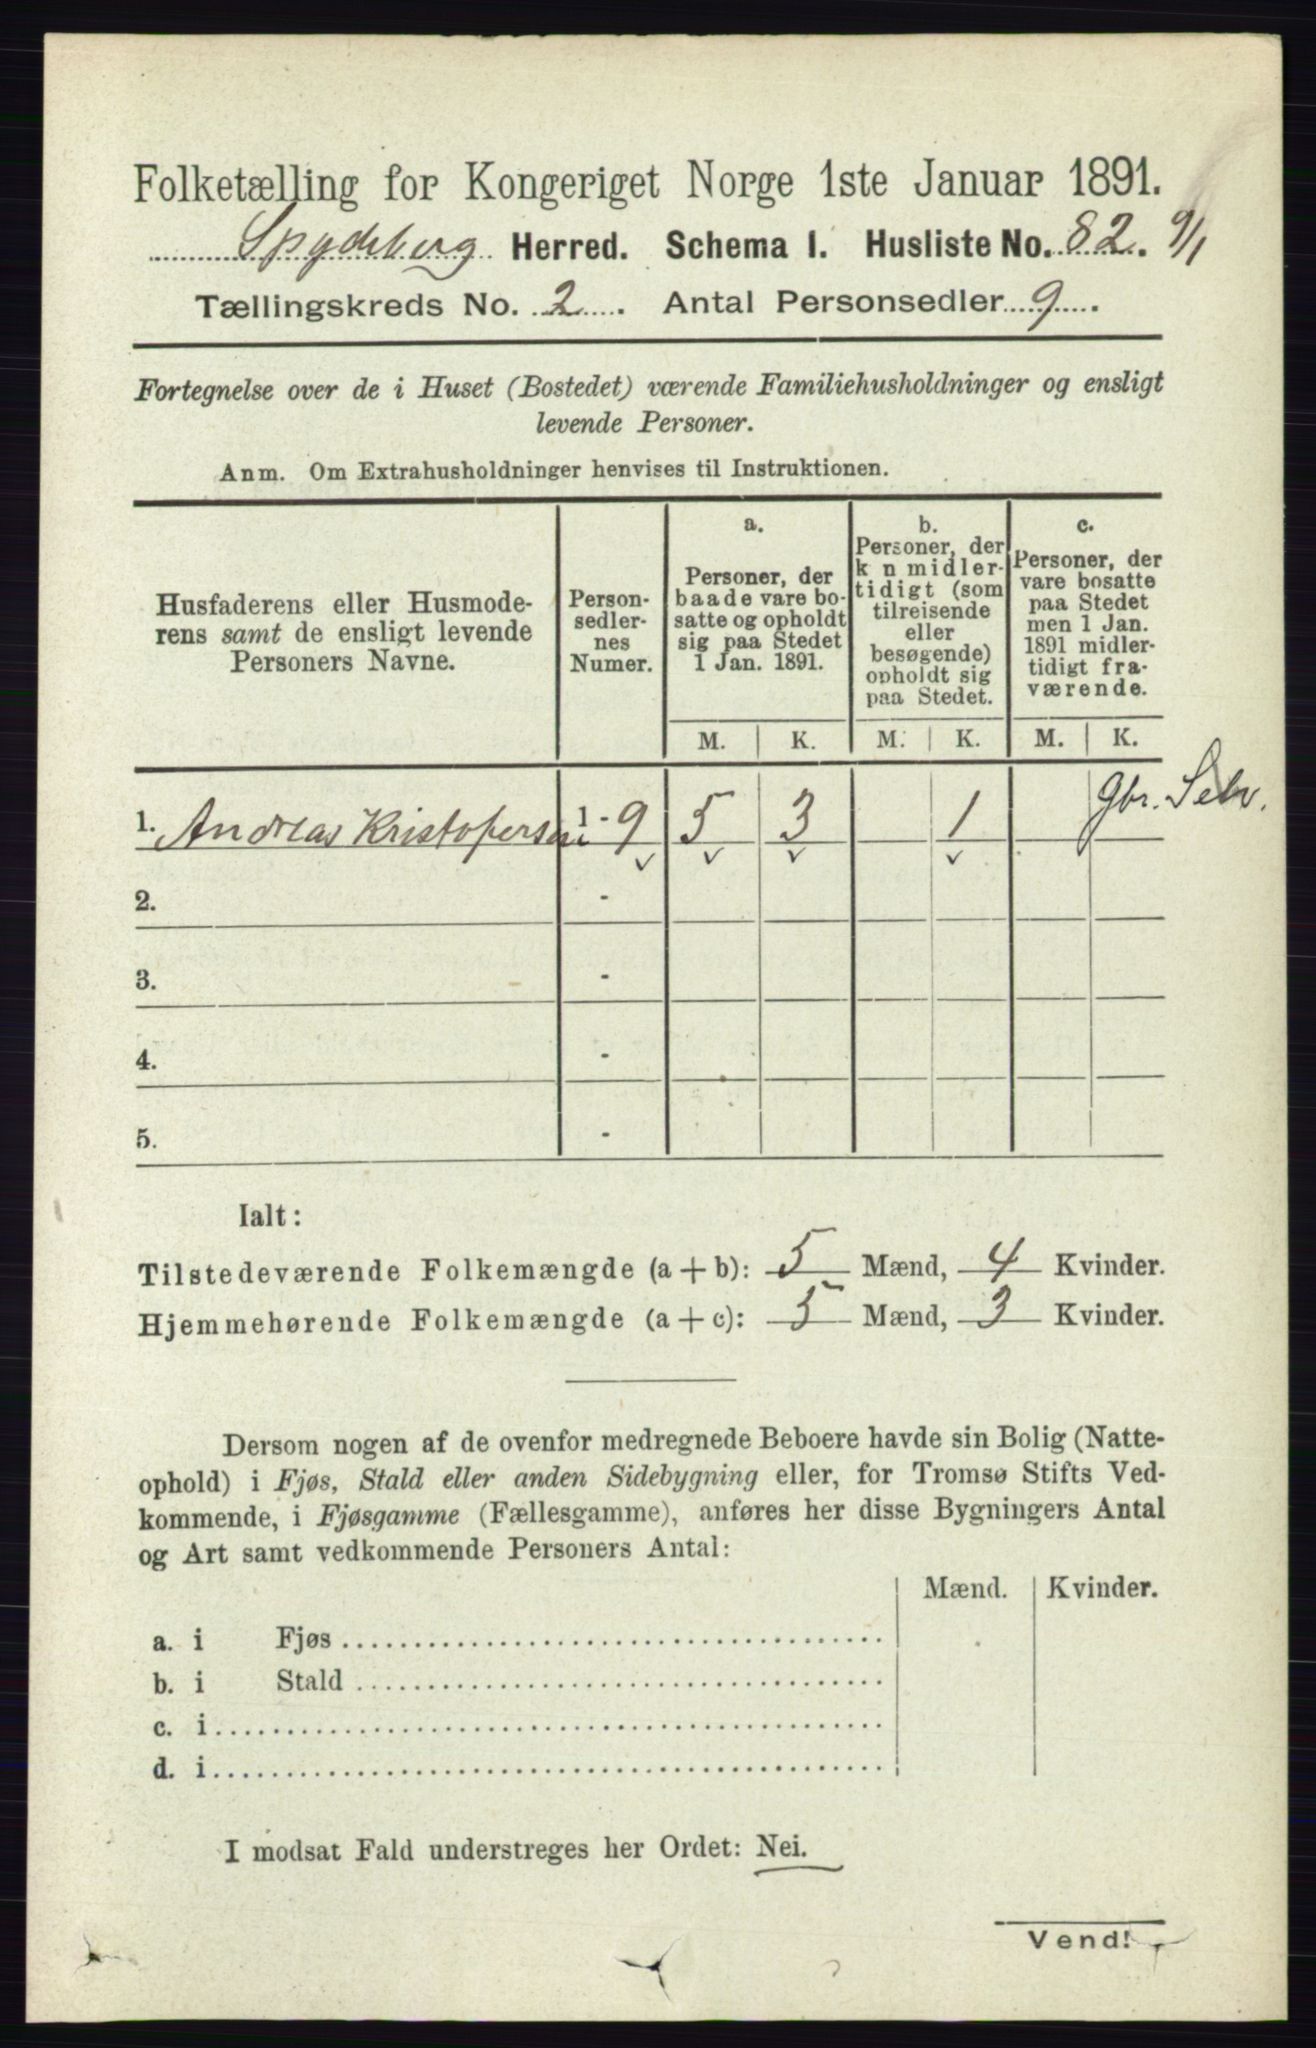 Folketælling for Kongeriget Norge 1ste Januar 1891.
Spydeberg Herred. Schema I. Husliste No. 82. 9/1
Tællingskreds No. 2. Antal Personsedler 9.
Fortegnelse over de i Huset (Bostedet) værende Familiehusholdninger og ensligt
levende Personer.
Anm. Om Extrahusholdninger henvises til Instruktionen.
Husfaderens eller Husmode-
rens samt de ensligt levende
Personers Navne.
Person-
sedler-
nes
Numer.
a.
Personer, der
baade vare bo-
satte og opholdt
sig paa Stedet
1 Jan. 1891.
b.
Personer, der
k n midler-
tidigt (som
tilreisende
eller
besøgende)
opholdt sig
paa Stedet.
c.
Personer, der
vare bosatte
paa Stedet
men 1 Jan.
1891 midler-
tidigt fra-
værende.
M. K. M. K. M. K.
1. Andreas Kristofersen 1 - 9 5 3 1 gbr. Selv.
2. -
3. -
4. -
5. -
Ialt:
Tilstedeværende Folkemængde (a + b): 5 Mænd, 4 Kvinder.
Hjemmehørende Folkemængde (a + c): 5 Mænd, 3 Kvinder.
Dersom nogen af de ovenfor medregnede Beboere havde sin Bolig (Natte-
ophold) i Fjøs, Stald eller anden Sidebygning eller, for Tromsø Stifts Ved-
kommende, i Fjøsgamme (Fællesgamme), anføres her disse Bygningers Antal
og Art samt vedkommende Personers Antal:
Mænd. Kvinder.
a. i Fjøs
b. i Stald
c. i
d. i
I modsat Fald understreges her Ordet: Nei.
Vend!